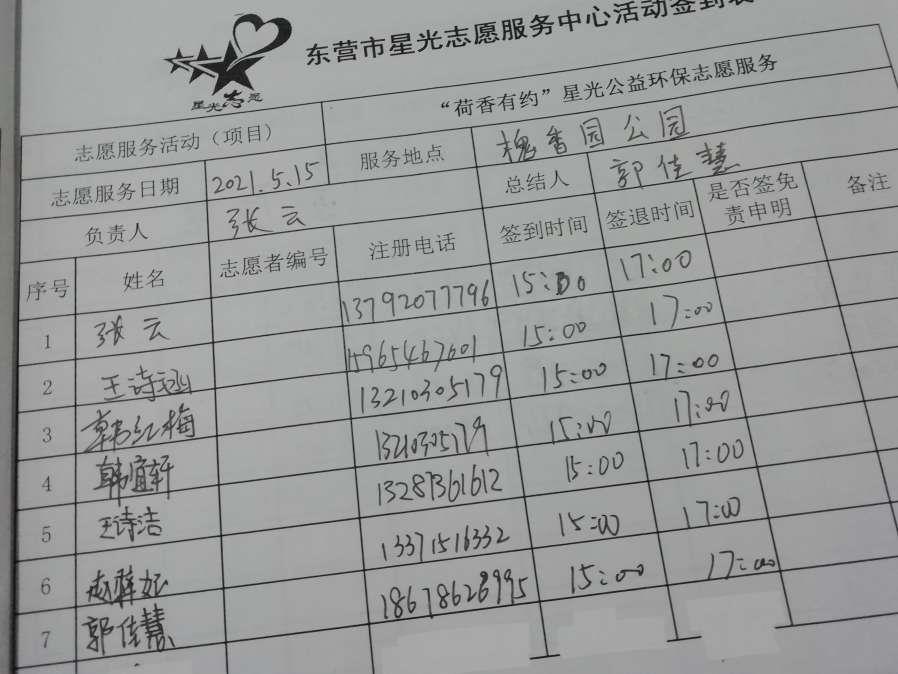 东营市星光志愿服务中心活动签到表
星光志愿
志愿服务活动（项目） “荷香有约”星光公益环保志愿服务
志愿服务日期 2021.5.15 服务地点 槐香园公园
负责人 张云 总结人 郭佳慧
序号 姓名 志愿者编号 注册电话 签到时间 签退时间 是否签免责申明 备注
1 张云 13792077796 15:00 17:00
2 王诗涵 15965467601 15:00 17:00
3 韩红梅 13210305179 15:00 17:00
4 韩 轩 13210305179 15:00 17:00
5 王诗洁 13287361612 15:00 17:00
6 赵梓妃 13371516332 15:00 17:00
7 郭佳慧 18678628995 15:00 17:00